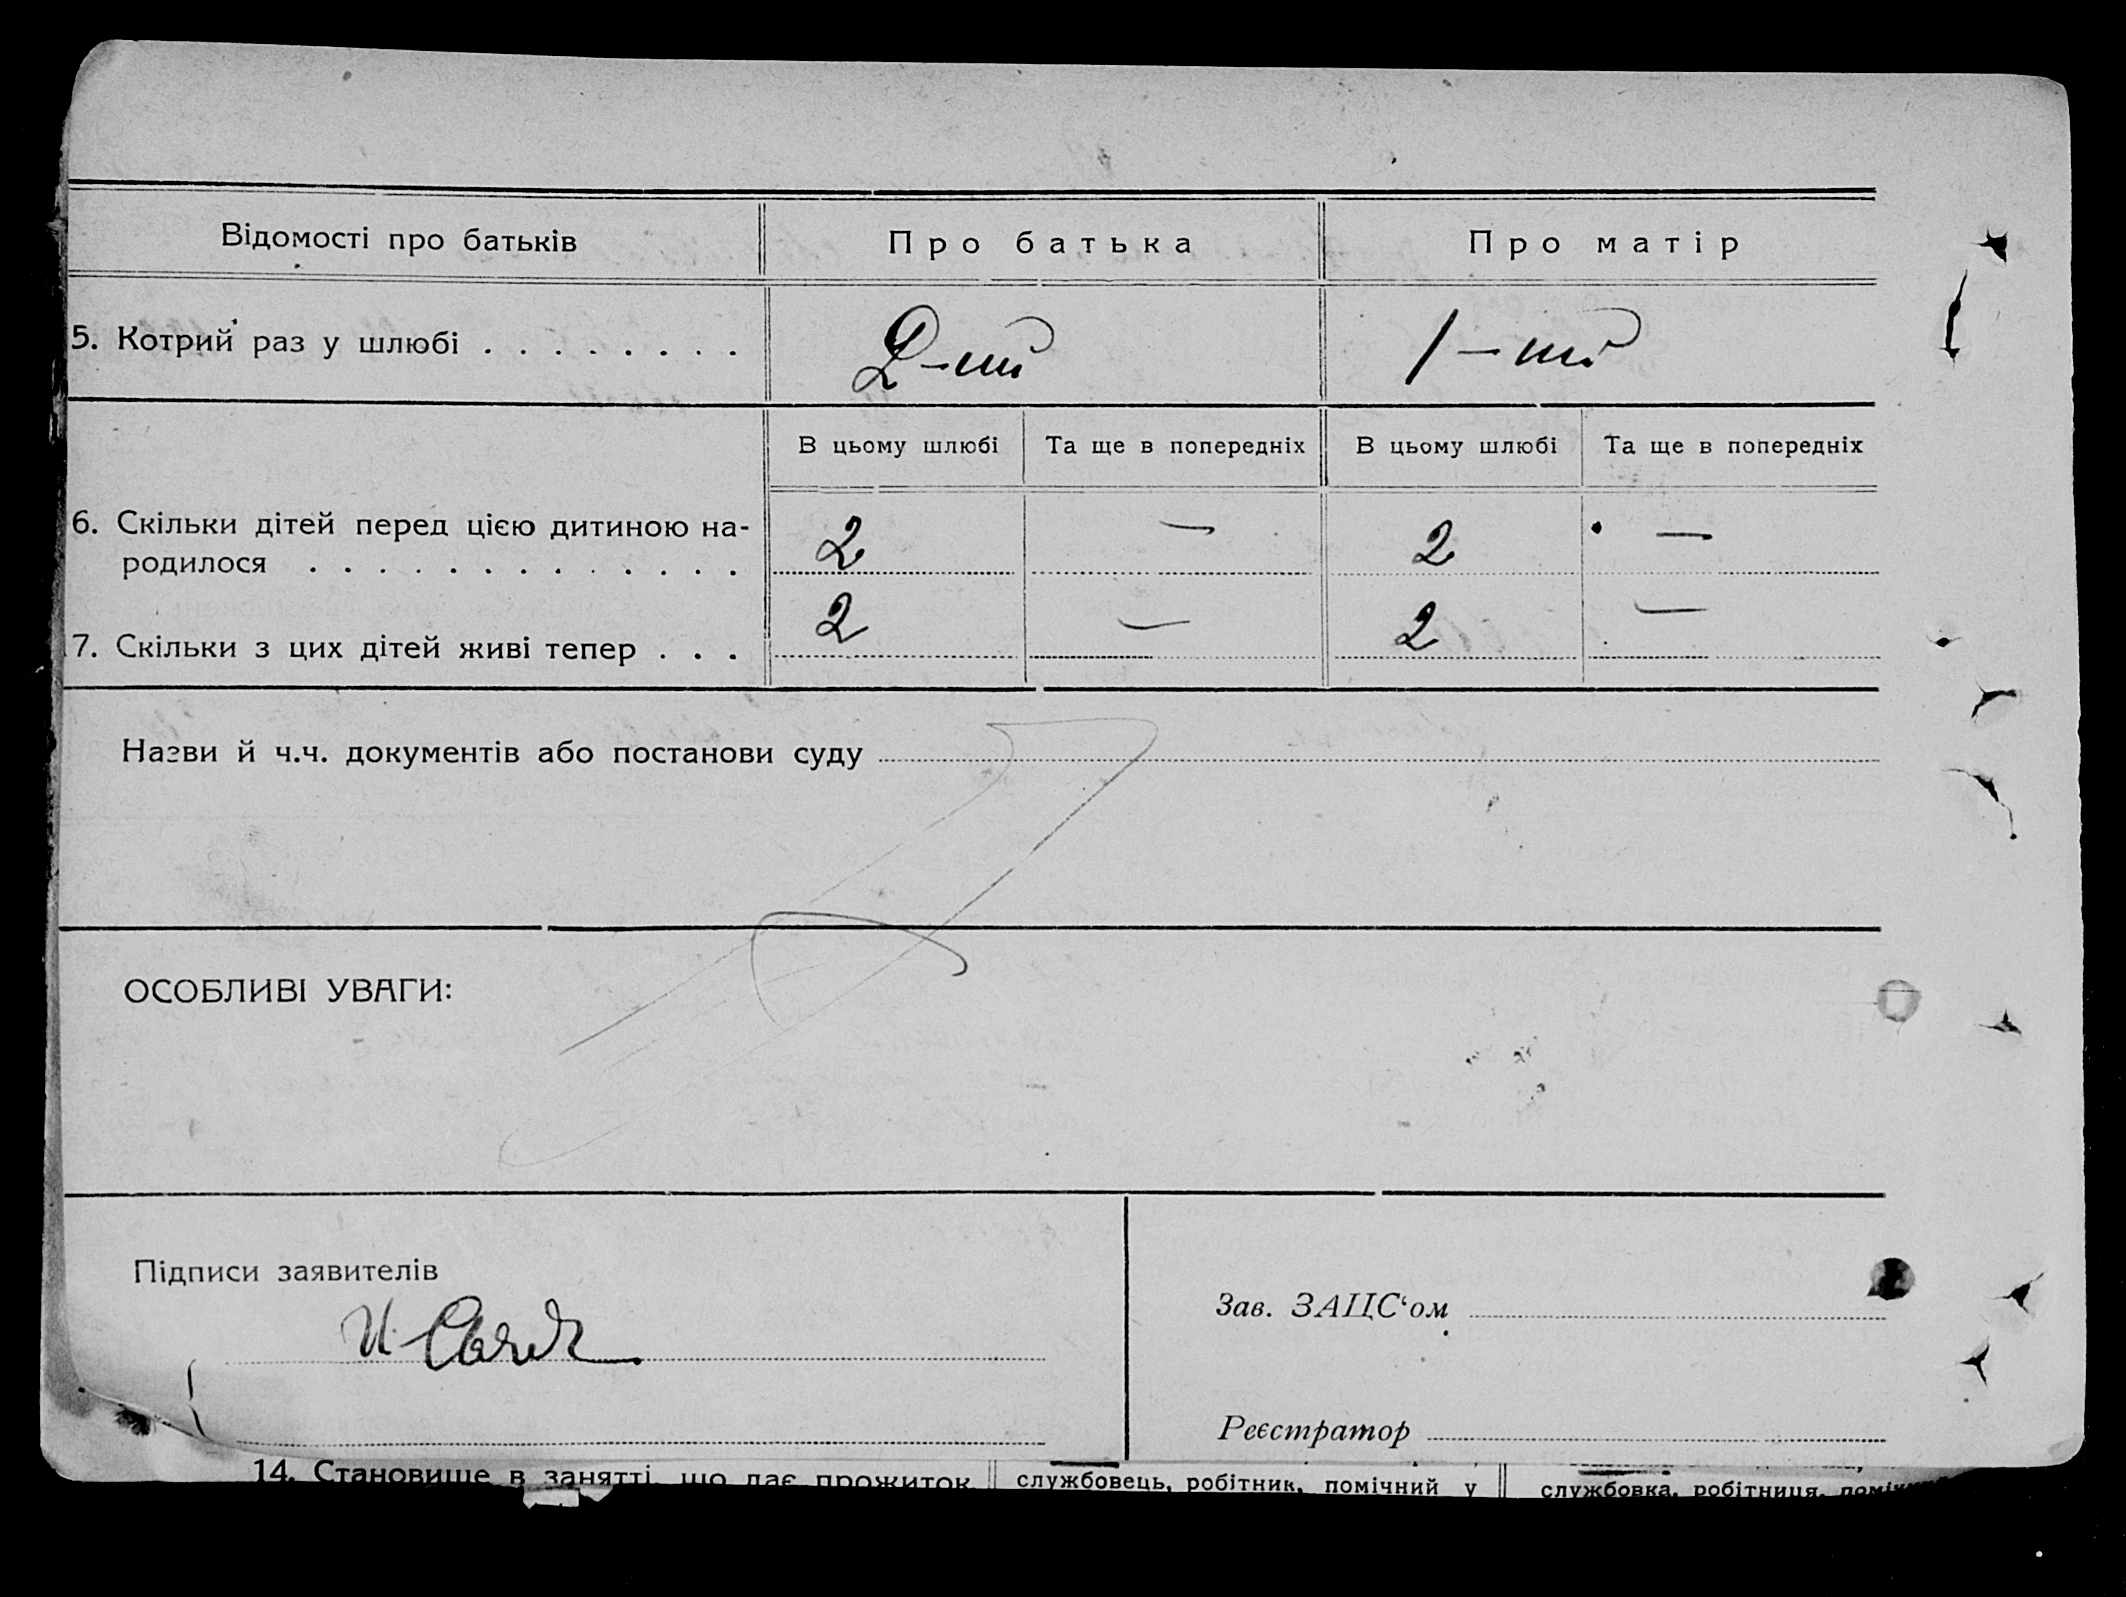 Відомості про батьків
Про батька
Про матір
5. Котрий раз у шлюбі . . . . . . . .
2-ий
1-ий
В цьому шлюбі
Та ще в попередніх
В цьому шлюбі
Та ще в попередніх
6. Скільки дітей перед цією дитиною на-
родилося . . . . . . . . . . . . .
2
—
2
—
7. Скільки з цих дітей живі тепер . . .
2
—
2
—
Назви й ч.ч. документів або постанови суду
ОСОБЛИВІ УВАГИ:
Підписи заявителів
Зав. ЗАЦС‘ом
Реєстратор
14. Становище в занятті, що дає прожиток
службовець, робітник, помічний у
службовка, робітниця,